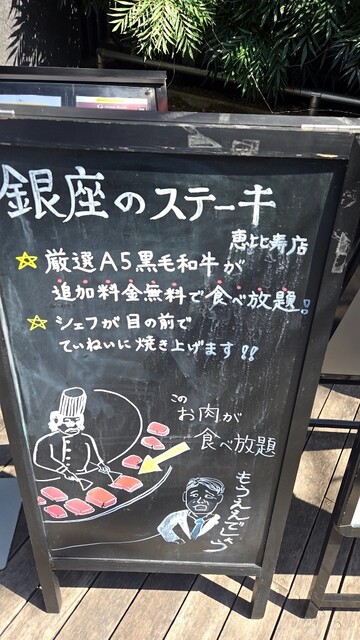 銀座のステーキ
恵比寿店
☆ 厳選A5黒毛和牛が
追加料金無料で食べ放題!
☆ シェフが目の前で
ていねいに焼き上げます!!
この
お肉が
食べ放題
もうええでしょう